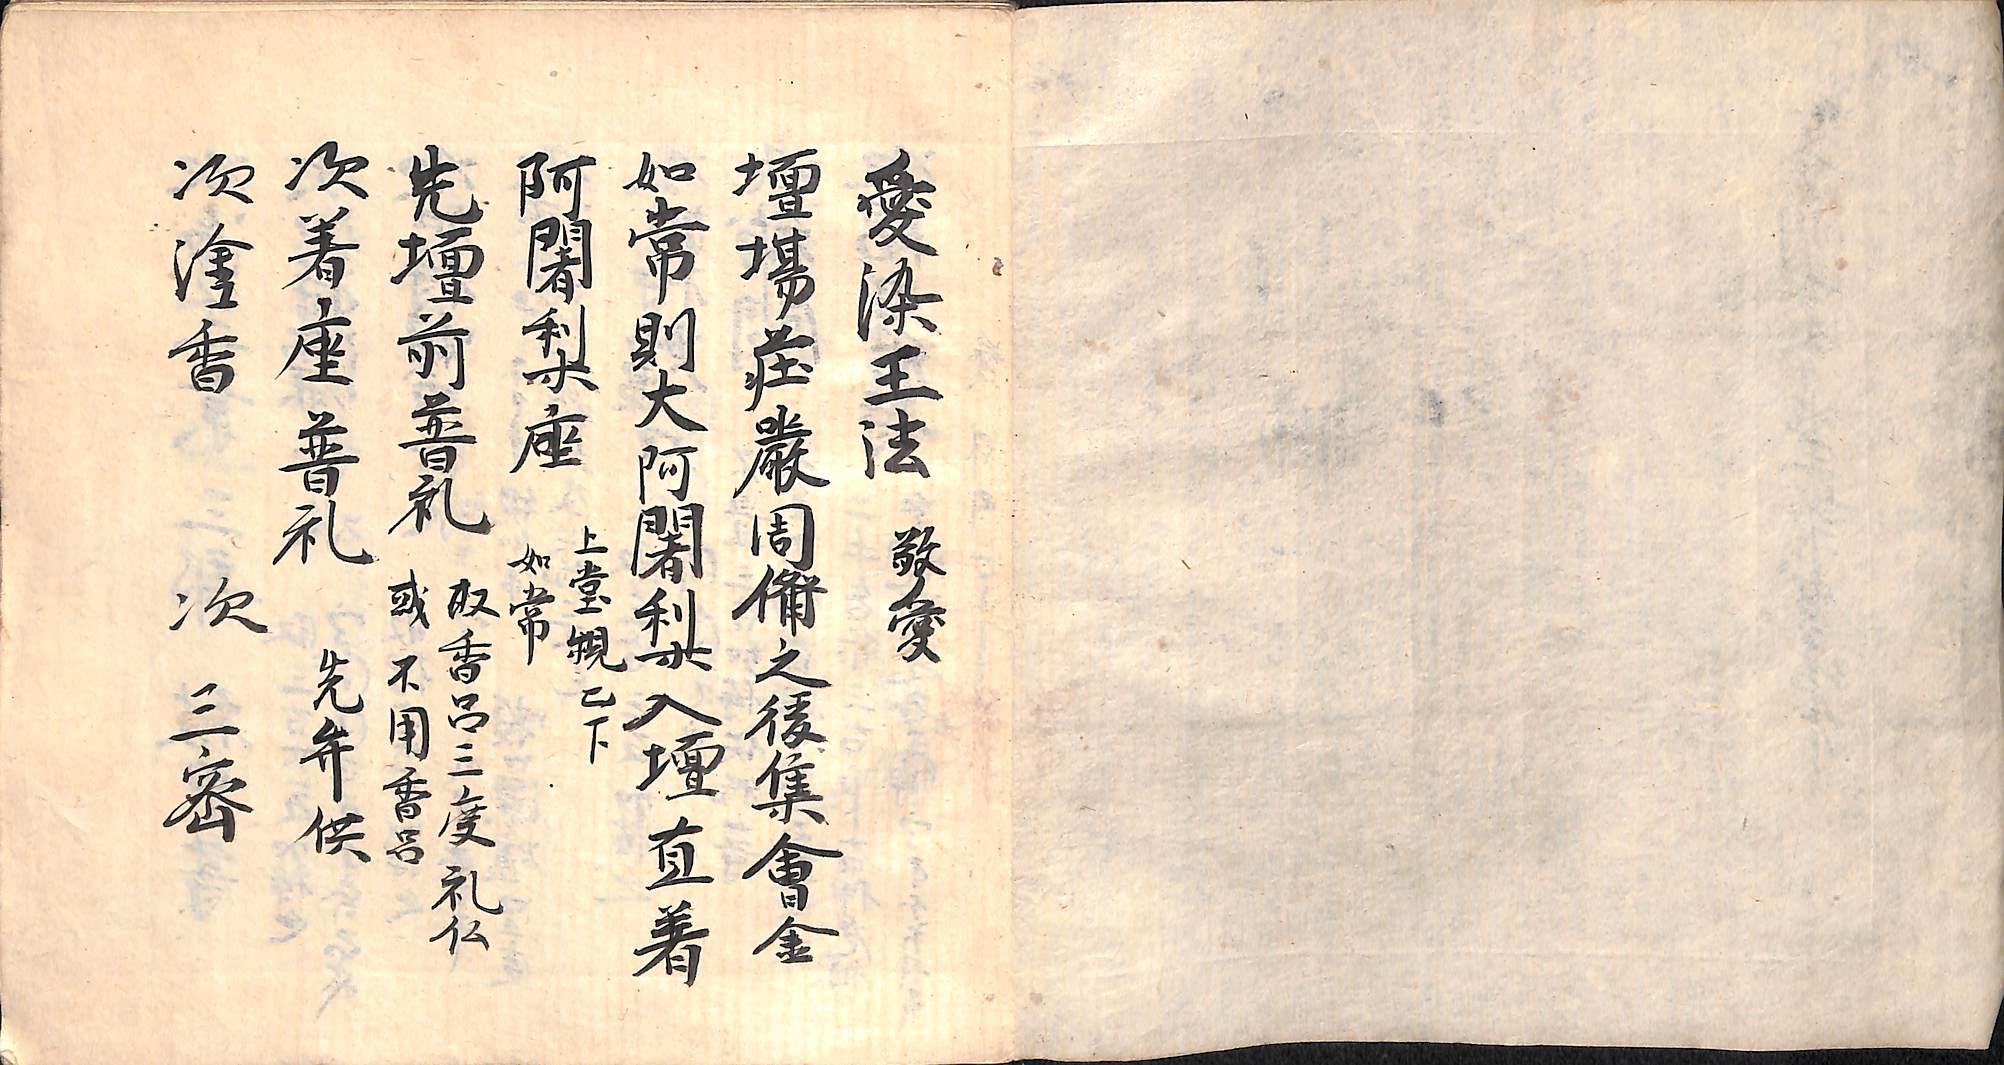 愛染王法 敬愛
壇場莊嚴周備之後集會金
如常則大阿闍梨入壇直着
阿闍梨座 上堂観已下
如常
先壇前普礼 取香呂三度礼仏
或不用香呂
次着座普礼 先弁供
次塗香 次三密